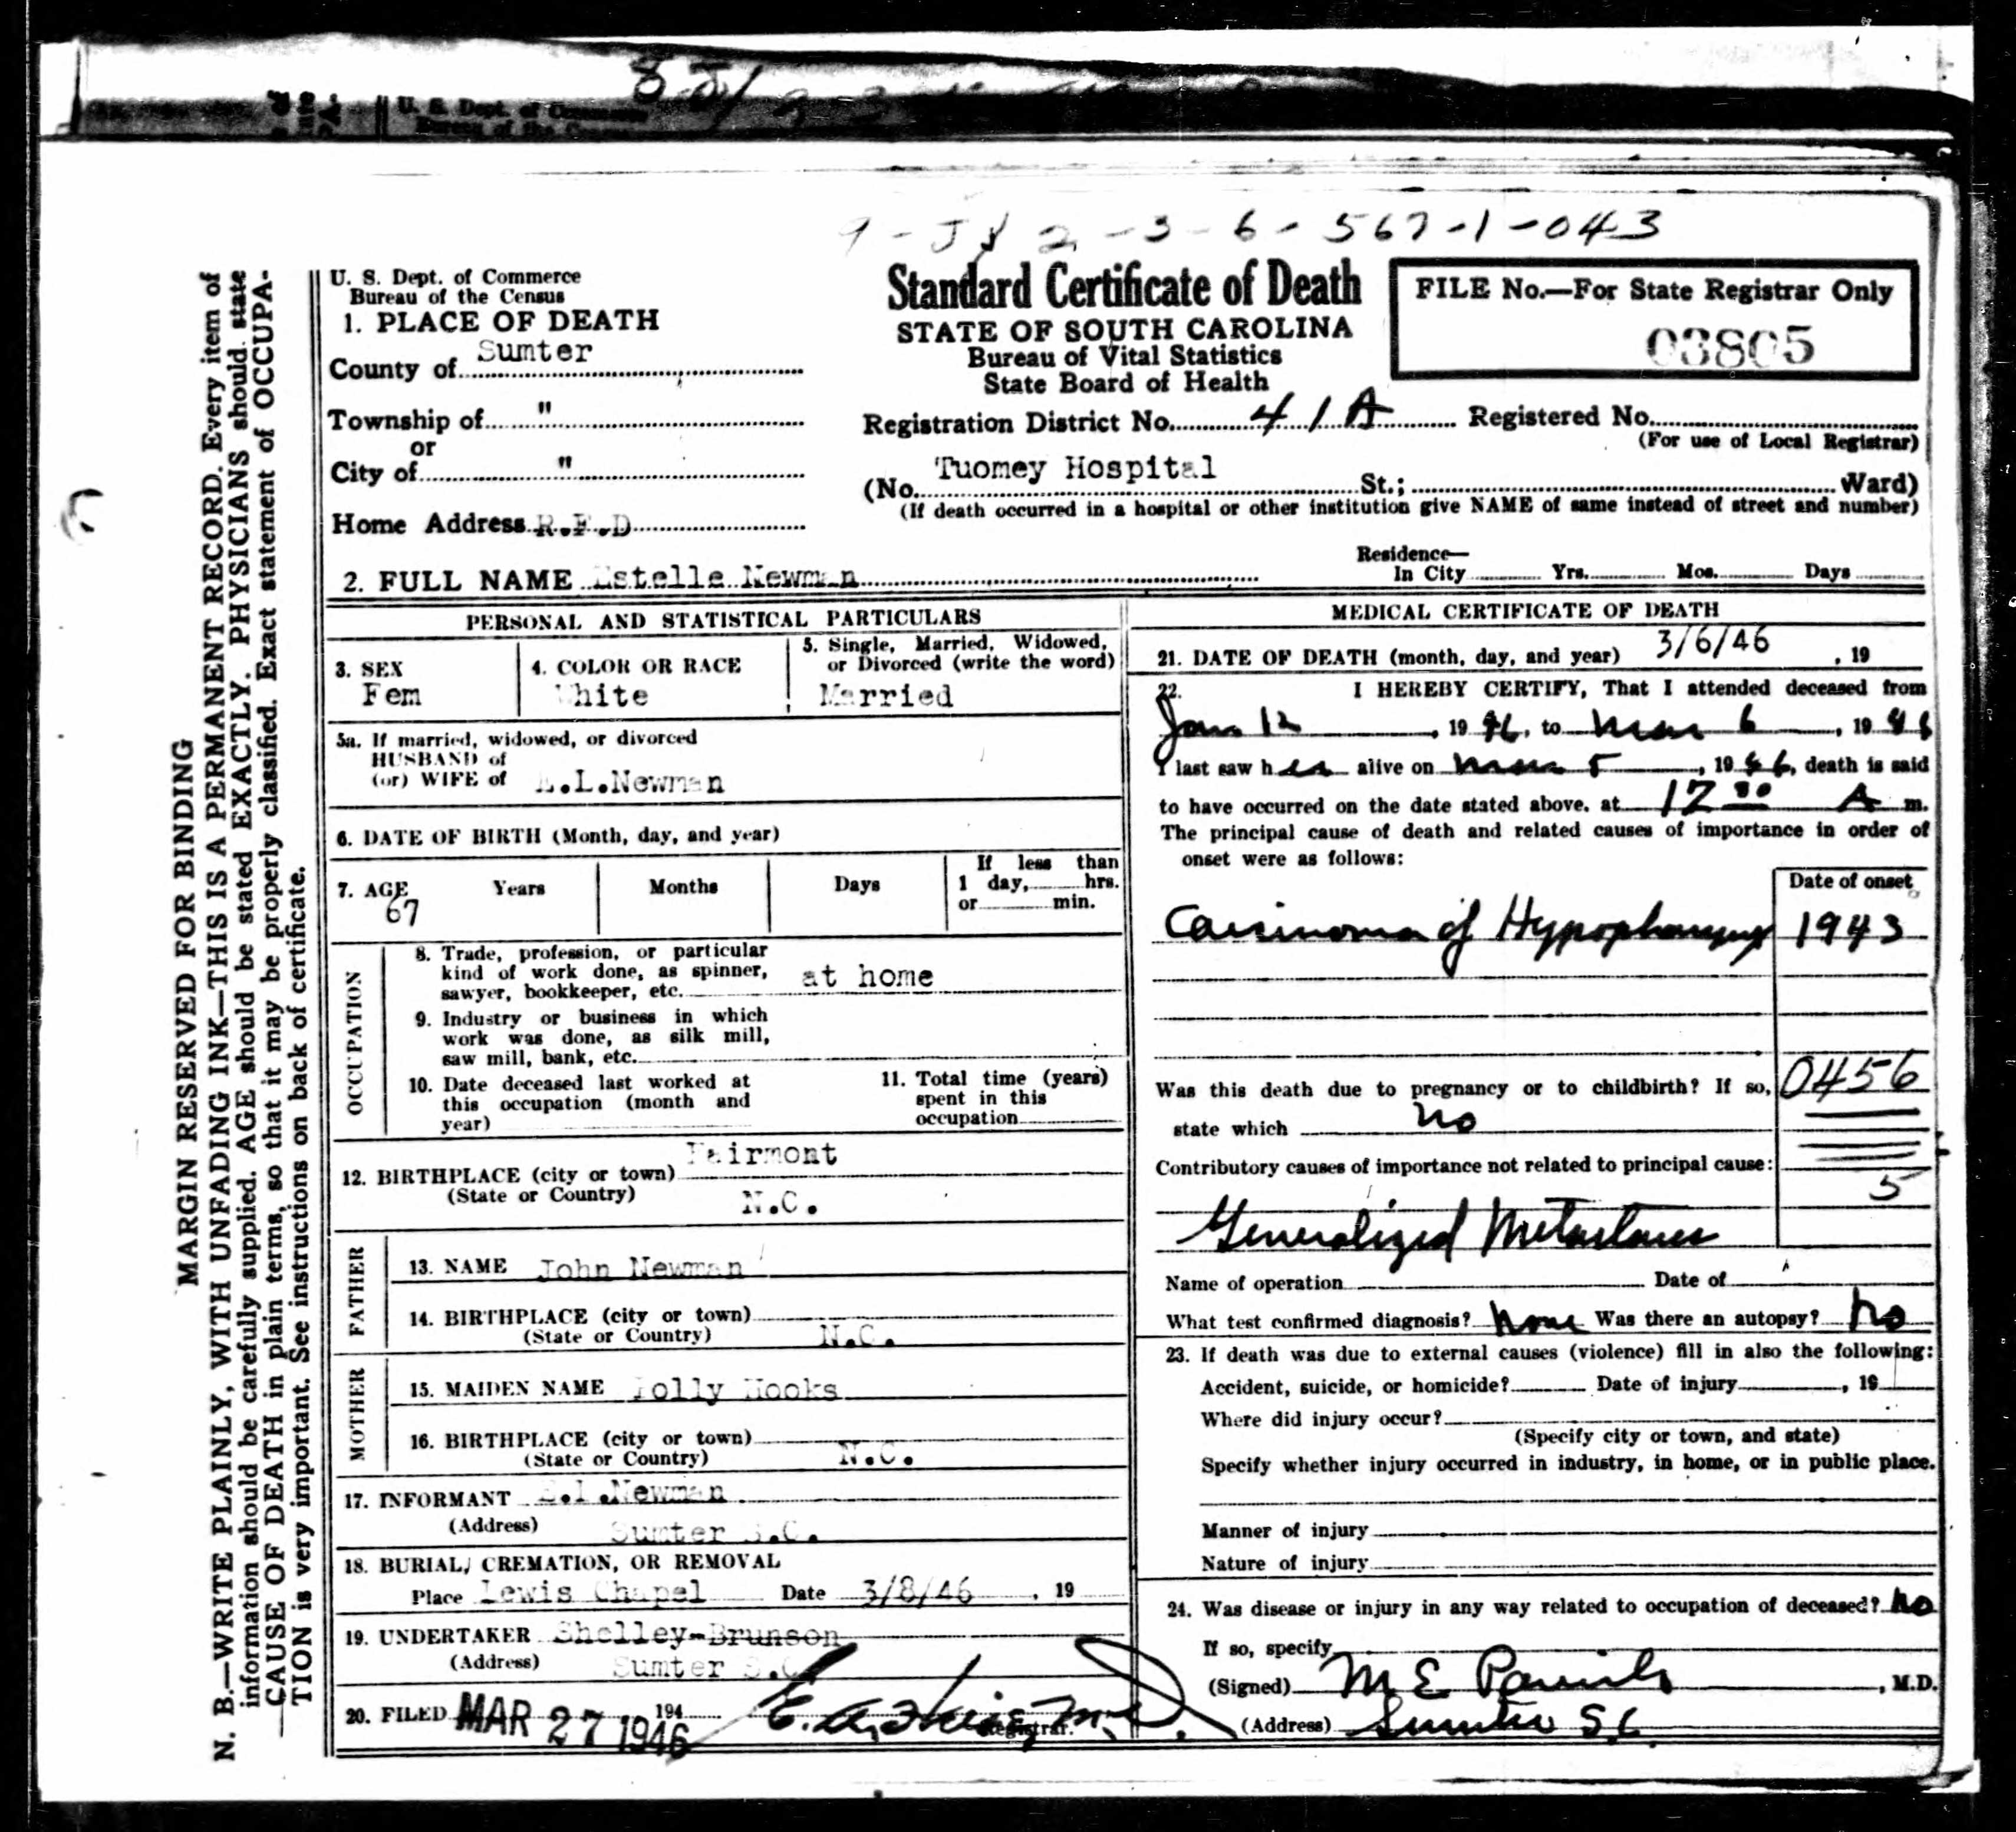 U. S. Dept. of Commerce
9 - J 8 2 - 3 - 6 - 567 - 1 - 043
U. S. Dept. of Commerce
Bureau of the Census
Standard Certificate of Death
STATE OF SOUTH CAROLINA
Bureau of Vital Statistics
State Board of Health
FILE No.—For State Registrar Only
03805
1. PLACE OF DEATH
County of Sumter
Township of "
or
City of "
Home Address R.F.D
Registration District No. 41A Registered No.
(For use of Local Registrar)
(No. Tuomey Hospital St.; Ward)
(If death occurred in a hospital or other institution give NAME of same instead of street and number)
2. FULL NAME Estelle Newman
Residence—
In City Yrs. Mos. Days
PERSONAL AND STATISTICAL PARTICULARS
3. SEX
Fem
4. COLOR OR RACE
White
5. Single, Married, Widowed,
or Divorced (write the word)
Married
5a. If married, widowed, or divorced
HUSBAND of
(or) WIFE of .L.Newman
6. DATE OF BIRTH (Month, day, and year)
7. AGE Years Months Days
67
If less than
1 day, hrs.
or min.
OCCUPATION
8. Trade, profession, or particular
kind of work done, as spinner,
sawyer, bookkeeper, etc. at home
9. Industry or business in which
work was done, as silk mill,
saw mill, bank, etc.
10. Date deceased last worked at
this occupation (month and
year)
11. Total time (years)
spent in this
occupation
12. BIRTHPLACE (city or town) Fairmont
(State or Country) N.C.
FATHER
13. NAME John Newman
14. BIRTHPLACE (city or town)
(State or Country) N.C.
MOTHER
15. MAIDEN NAME Hooks
16. BIRTHPLACE (city or town)
(State or Country) N.C.
17. INFORMANT Newman
(Address) Sumter S.C.
18. BURIAL, CREMATION, OR REMOVAL
Place Lewis Chapel Date 3/8/46 , 19
19. UNDERTAKER Shelley-Brunson
(Address) Sumter S.C
20. FILED MAR 27 1946 194
Registrar.
MEDICAL CERTIFICATE OF DEATH
21. DATE OF DEATH (month, day, and year) 3/6/46 , 19
22. I HEREBY CERTIFY, That I attended deceased from
Jan 12 , 1946, to Mar 6 , 1946
I last saw her alive on Mar 5 , 1946, death is said
to have occurred on the date stated above, at 12 30 A m.
The principal cause of death and related causes of importance in order of
onset were as follows:
Date of onset
Carsinoma of Hypopharynx 1943
Was this death due to pregnancy or to childbirth? If so, 0456
state which no
Contributory causes of importance not related to principal cause:
5
Generalized Metastases
Name of operation Date of
What test confirmed diagnosis? none Was there an autopsy? no
23. If death was due to external causes (violence) fill in also the following:
Accident, suicide, or homicide? Date of injury , 19
Where did injury occur?
(Specify city or town, and state)
Specify whether injury occurred in industry, in home, or in public place.
Manner of injury
Nature of injury
24. Was disease or injury in any way related to occupation of deceased? no
If so, specify
(Signed) M E , M.D.
(Address) Sumter S.C.
MARGIN RESERVED FOR BINDING
N. B.—WRITE PLAINLY, WITH UNFADING INK—THIS IS A PERMANENT RECORD. Every item of
information should be carefully supplied. AGE should be stated EXACTLY. PHYSICIANS should state
CAUSE OF DEATH in plain terms, so that it may be properly classified. Exact statement of OCCUPA-
TION is very important. See instructions on back of certificate.